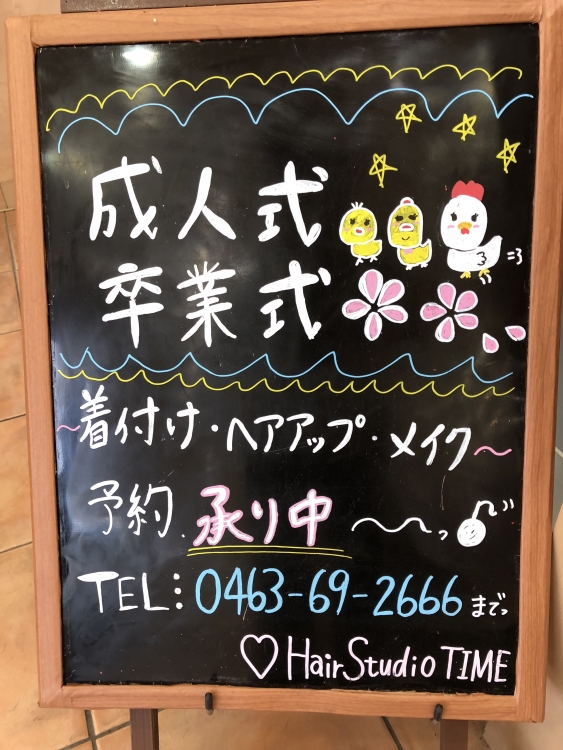 成人式
卒業式
~着付け・ヘアアップ・メイク~
予約 承り中 ~っ
TEL: 0463-69-2666 までっ
♡ Hair Studio TIME